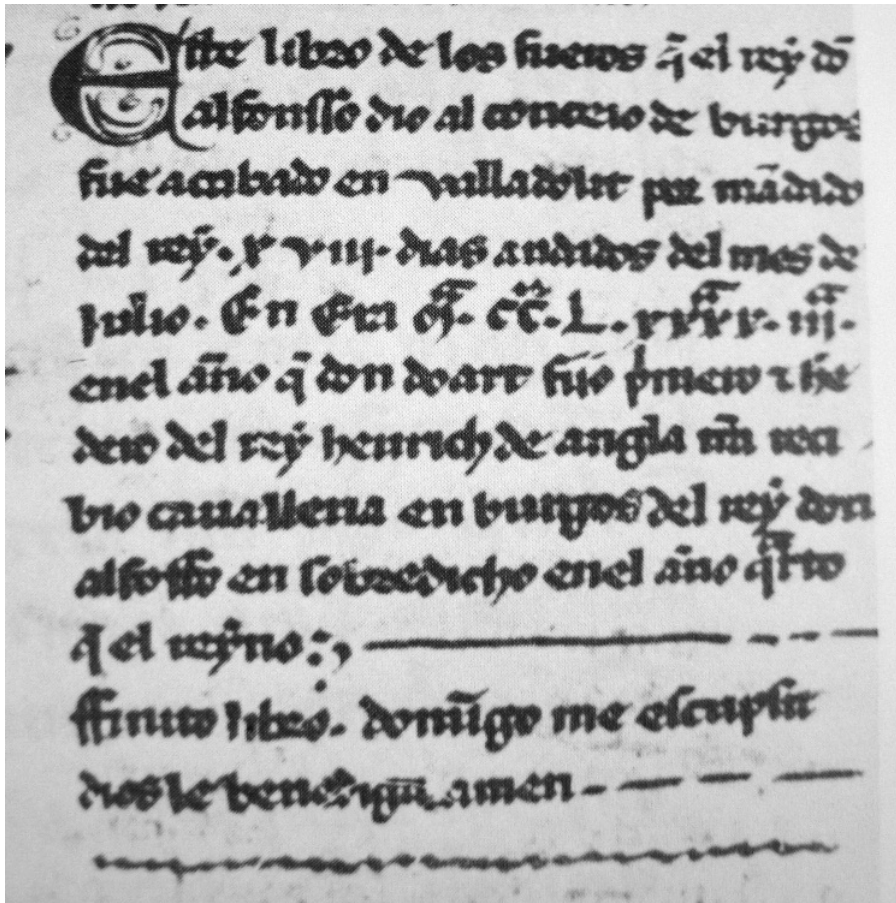 Este libro de los fueros q̃ el rey dõ
alfonsso dio al conceio de burgos
fue acabado en valladolit por mãdado
del rey. x viii. dias andados del mes de
Julio. En Era
en el año q̃ don doart fijo primero ⁊ he
dero del rey henrich de anglat̃ra reci
bio cauallería en burgos del rey don
alfosso en sobredicho en el año q̃rto
q̃ el reyno:,
ffinito libro. domĩgo me escripsit
dios le benediga. amen